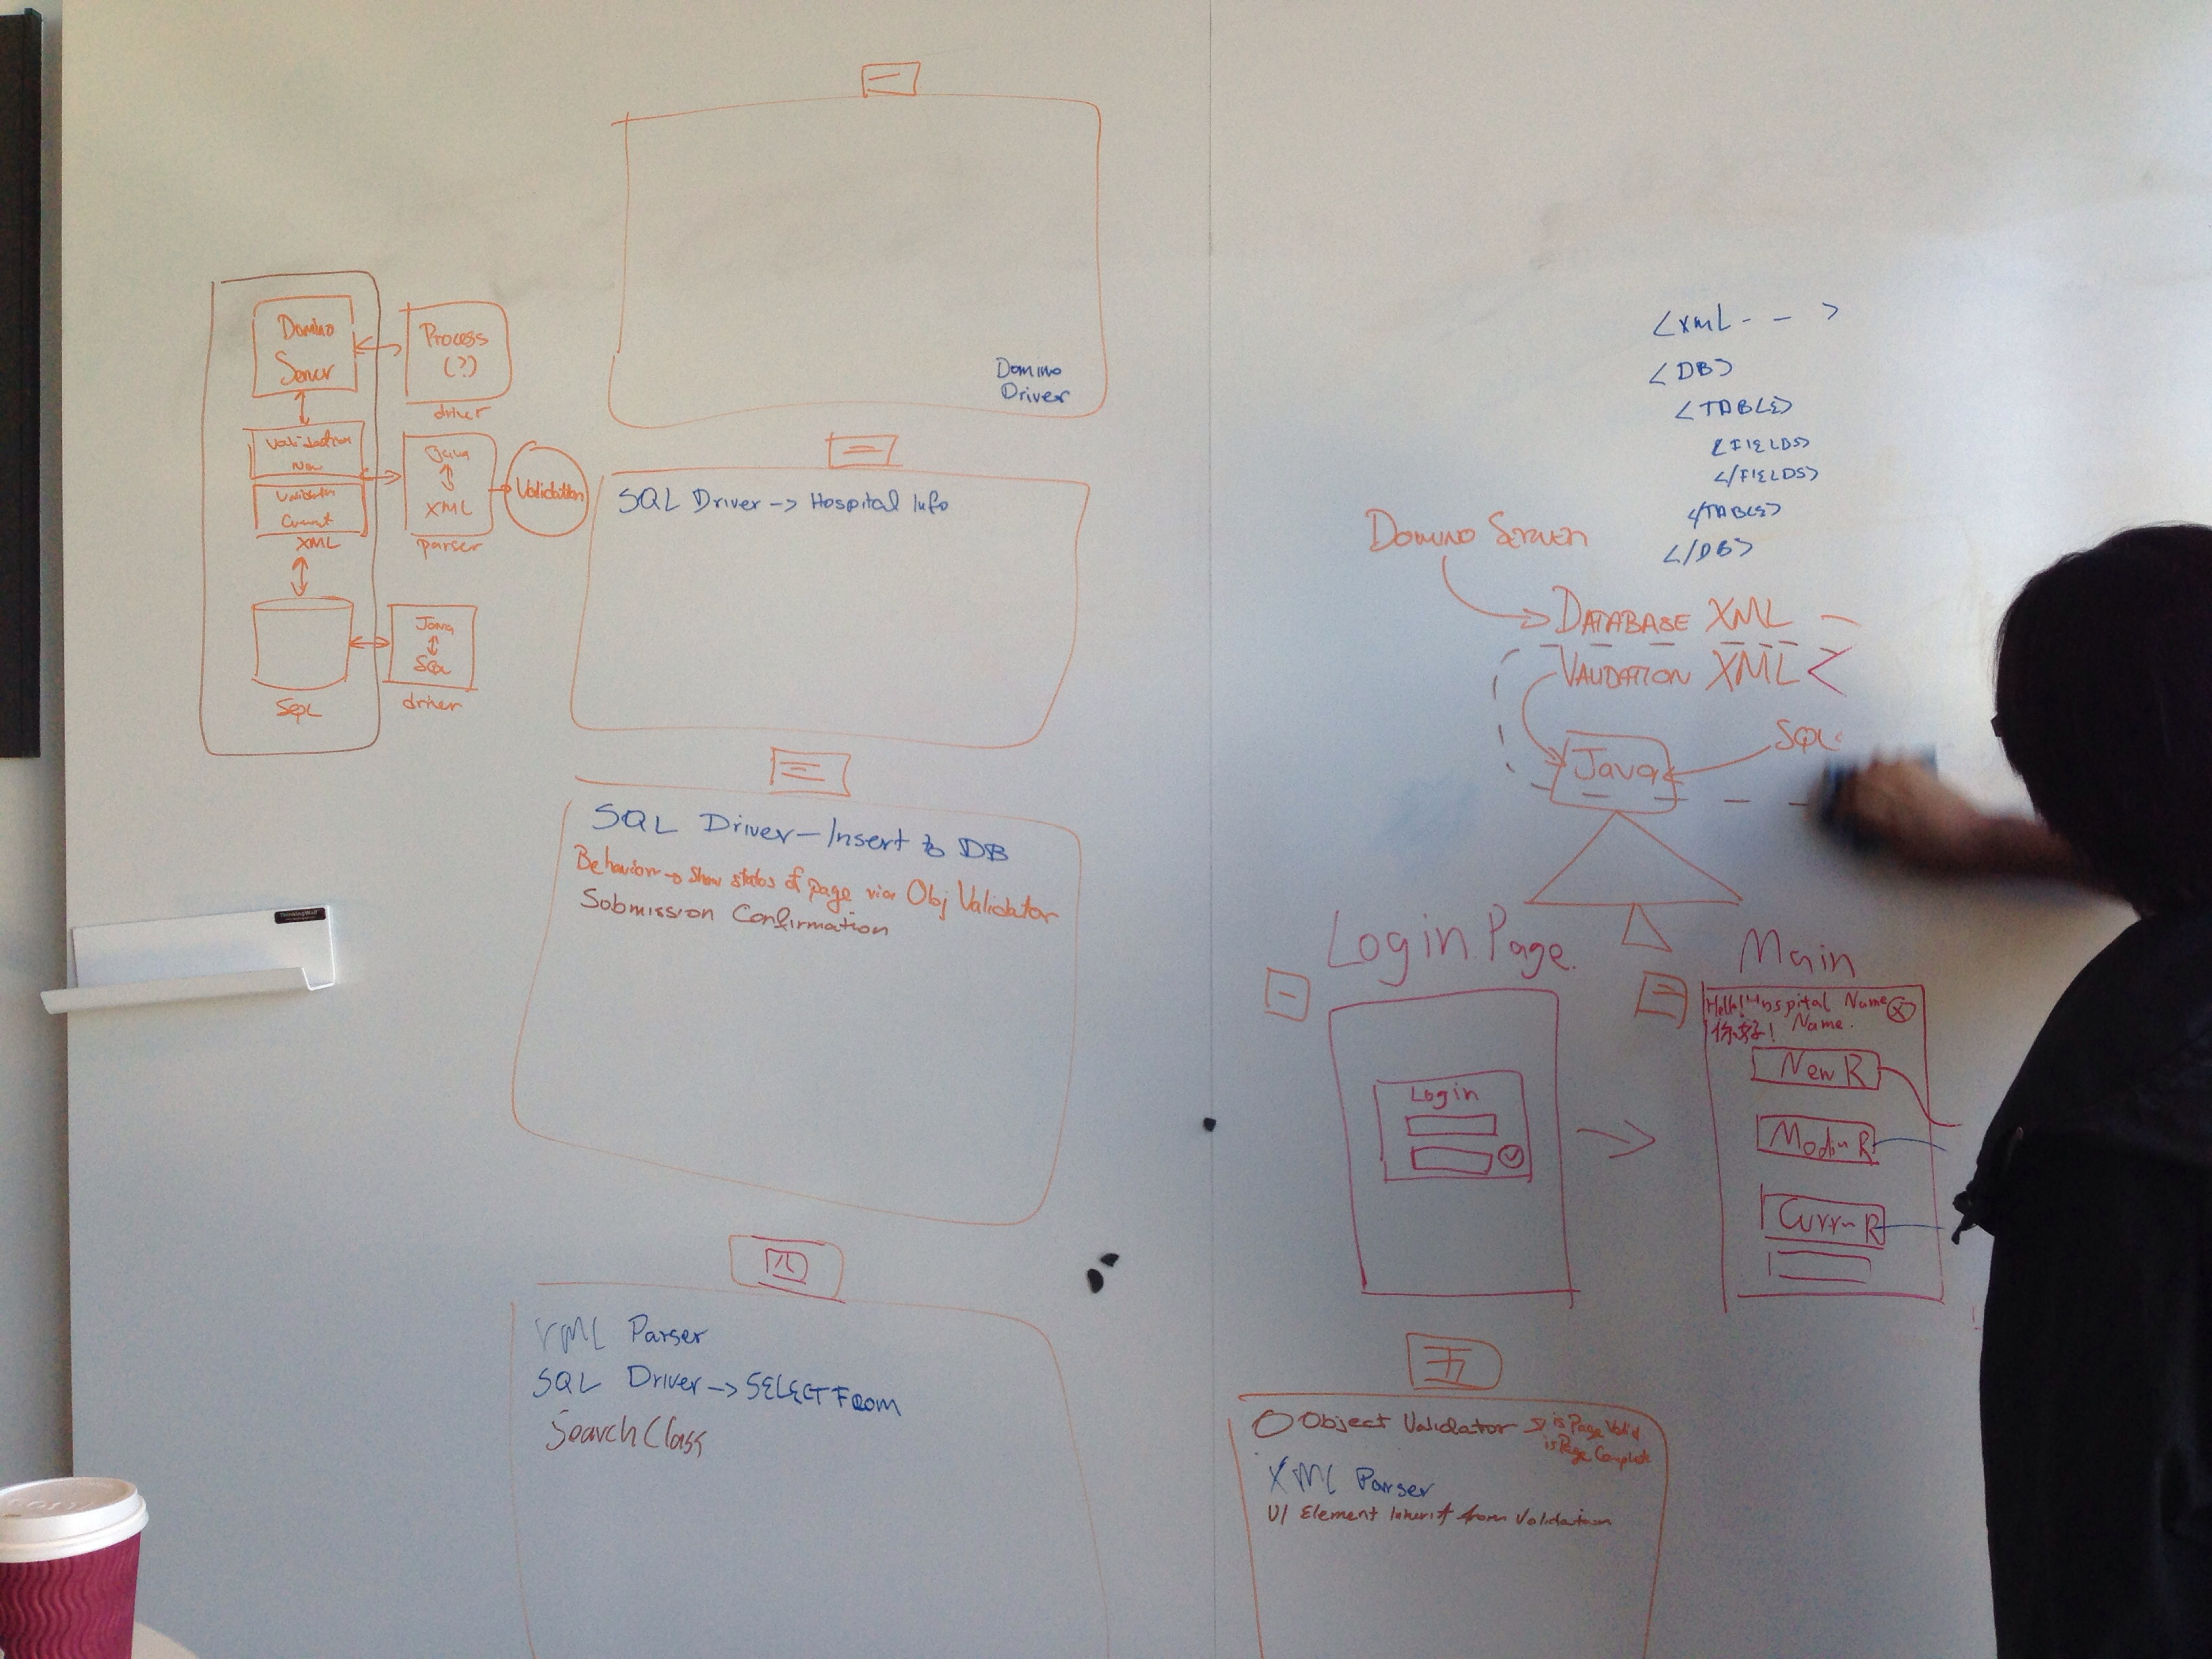 Domino
Server
Process
(?)
driver
Validation
New
Validation
Current
XML
Java
XML
parser
Validation
Java
SQL
driver
SQL
一
Domino
Driver
二
SQL Driver -> Hospital Info
三
SQL Driver - Insert to DB
Behavior -> Show status of page via Obj Validator
Submission Confirmation
四
XML Parser
SQL Driver -> SELECT FROM
Search Class
<XML - - >
<DB>
<TABLE>
<FIELDS>
</FIELDS>
</TABLE>
</DB>
DOMINO SERVER
DATABASE XML
VALIDATION XML
Java
SQL
Login Page.
一
Login
Main
二
Hello! Hospital Name
你好! Name.
New R
Modin R
Currn R
五
Object Validator -> is Page Valid
is Page Complete
XML Parser
UI Element Inherit from Validation